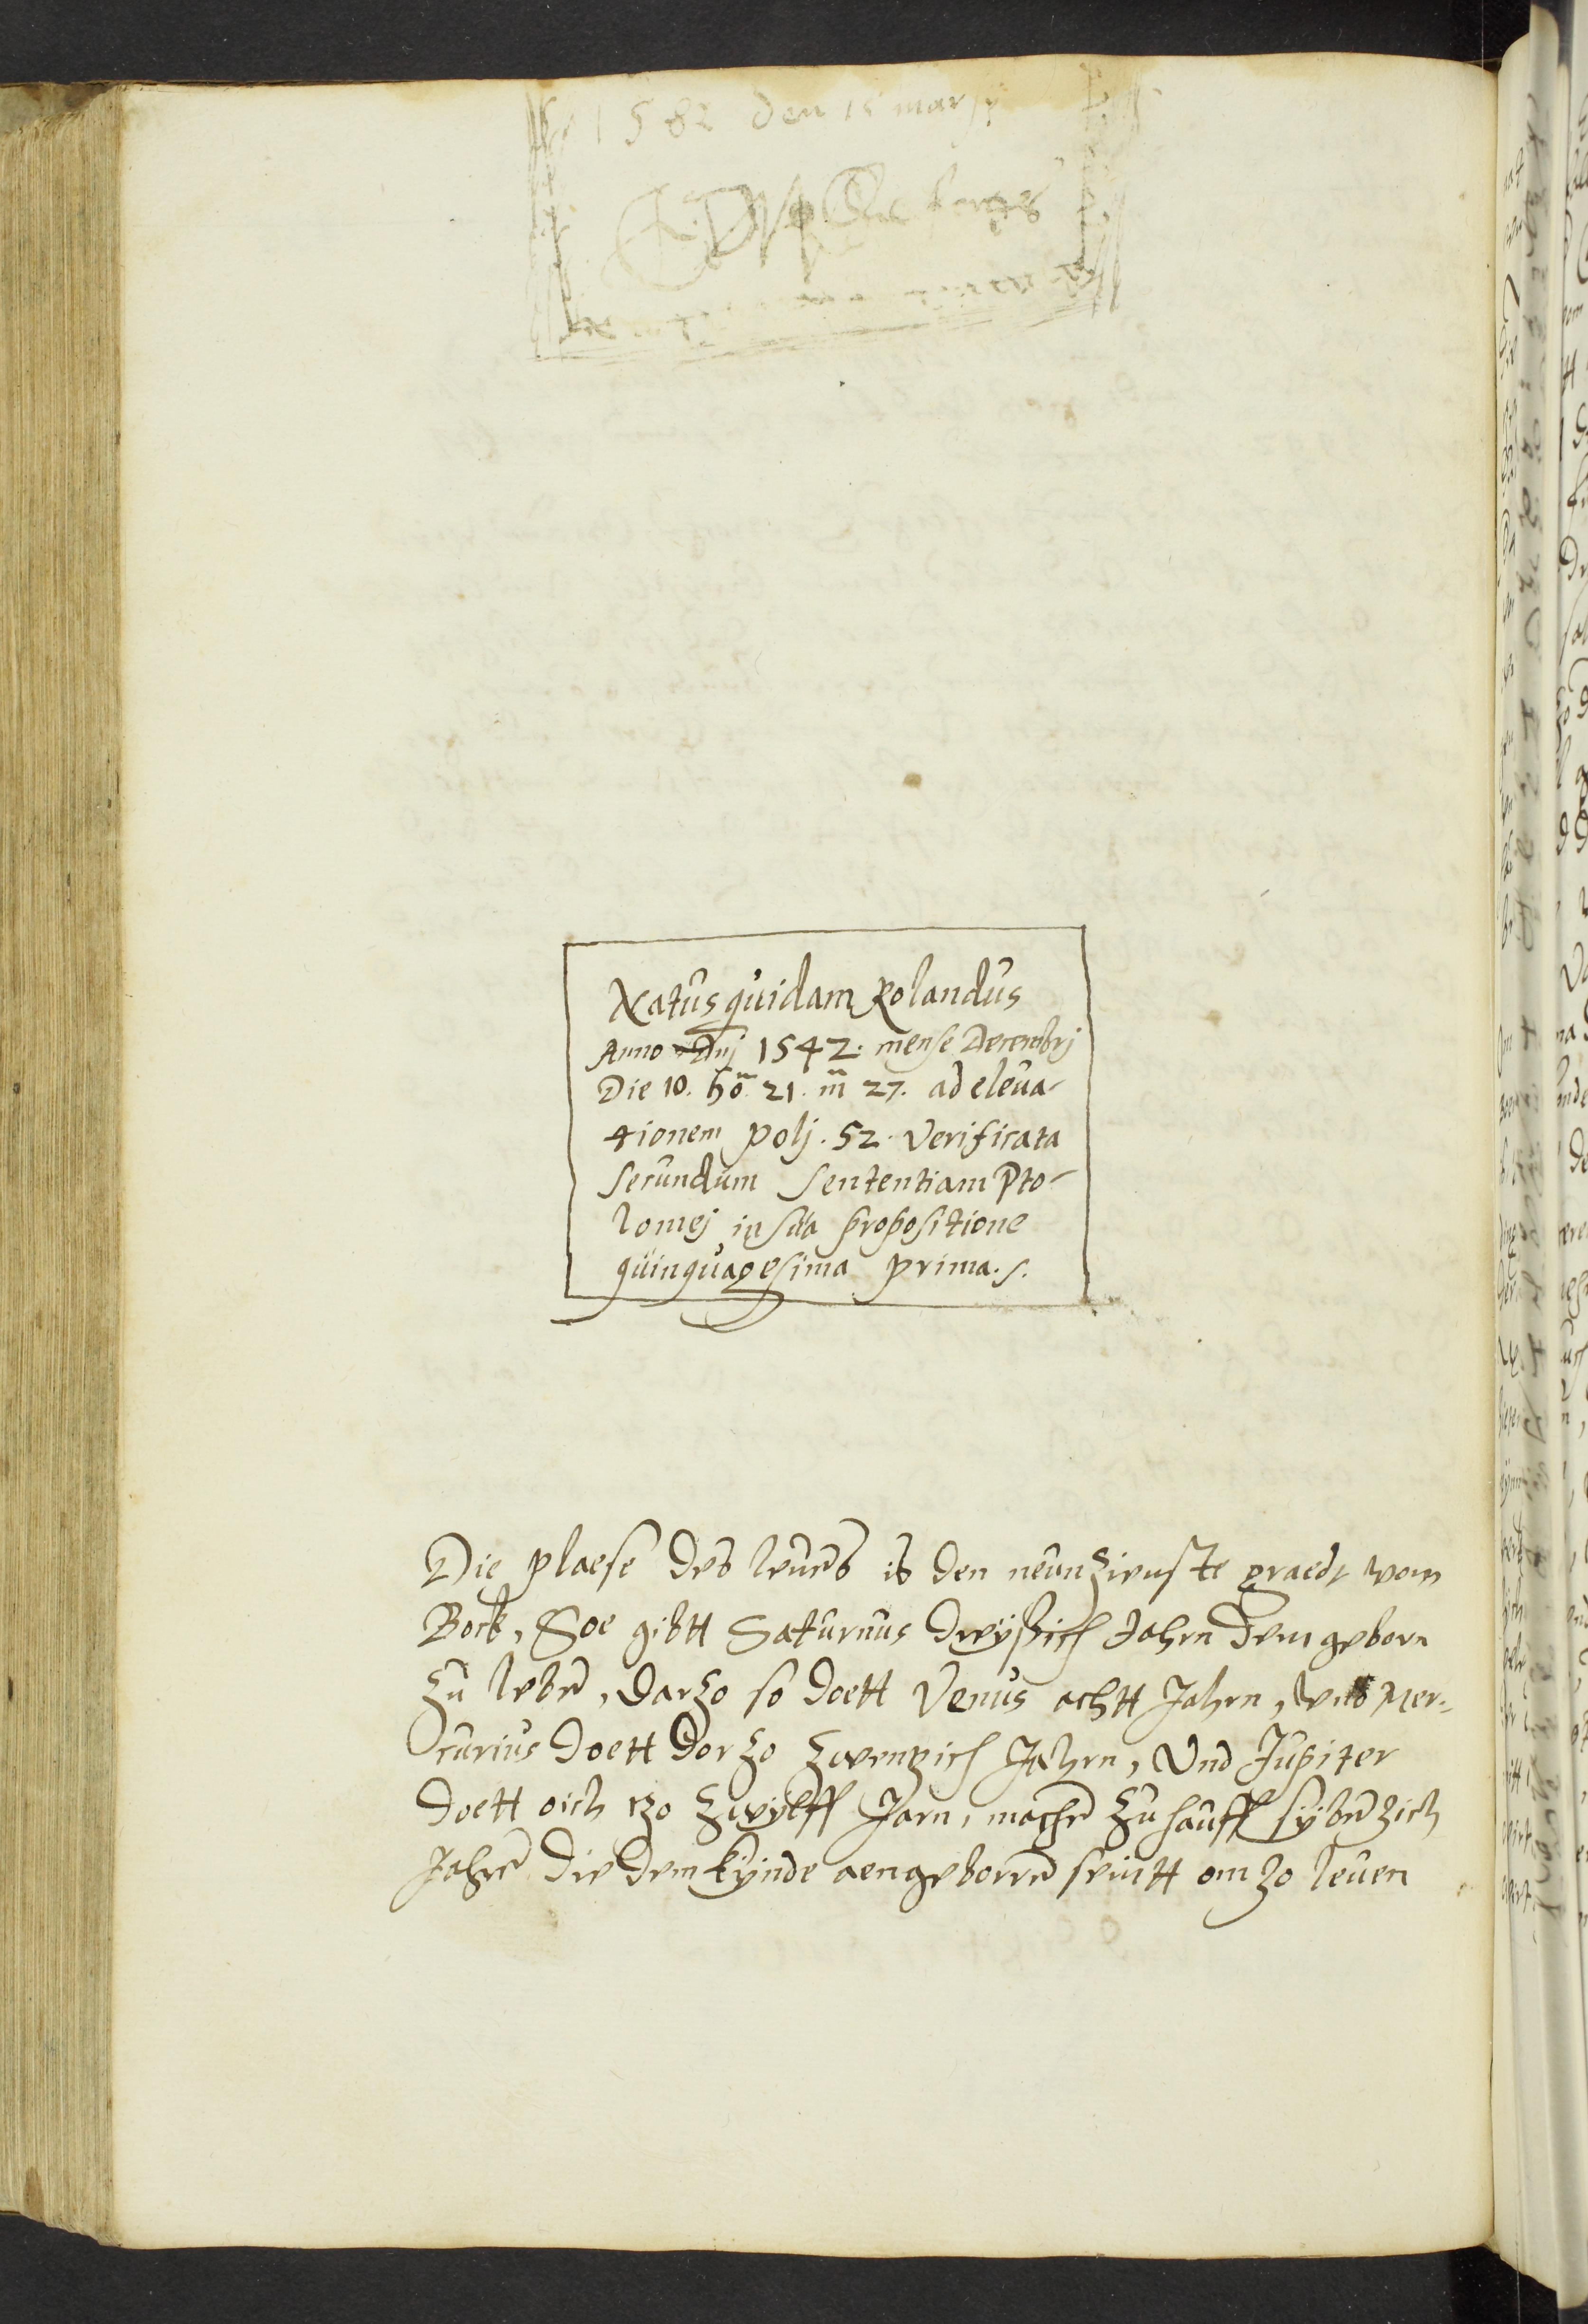 1582 den 15 marsy
Natus quidam Rolandus
Anno Dnj 1542. mense Decembrj
Die 10. ho 21. m 27. ad eleua-
tionem polj. 52. Verificata
secundum sententiam Pto-
lomej in sua propositione
quinquagesima prima. s.
Die plaese des leuens is den neunzienste graedt vom
Bock, Soe gibtt Saturnus dreyßich Jahrn dem geborn
zu leben, darzo so doett Venus achtt Jahrn, Mer-
curius doett dorzo zwentzich Jahrn, Vnd Jupiter
doett oich tzo zwylff Jarn, machen zu hauff sybenzich
Jahren die dem kynde aengeborren seintt om zo leuen